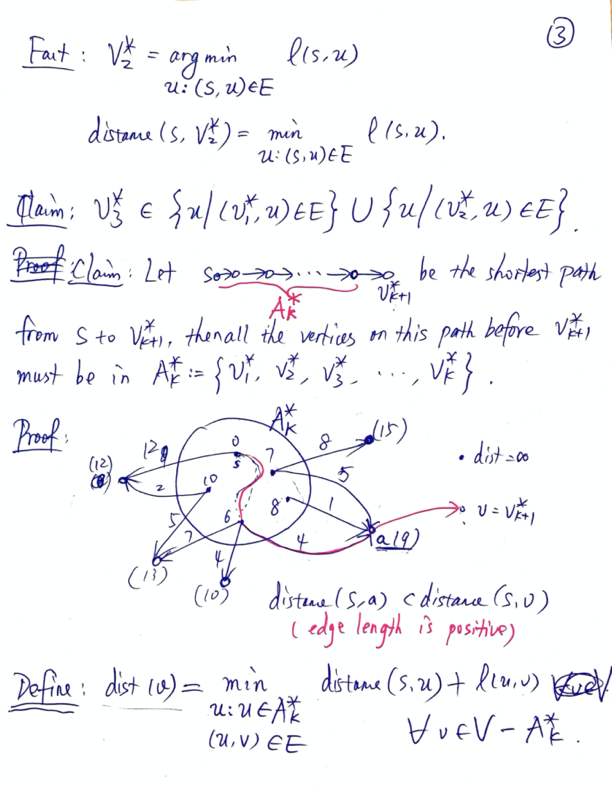 ③
Fact : V₂* = argmin l(s,u)
u: (s,u)∈E
distance (s, V₂*) = min l(s,u).
u: (s,u)∈E
Claim: V₃* ∈ {u/(v₁*,u)∈E} ∪ {u/(v₂*,u)∈E}.
Proof: Claim: Let s→o→o→...→o→o be the shortest path
A*ₖ V*ₖ₊₁
from s to V*ₖ₊₁, then all the vertices on this path before V*ₖ₊₁
must be in A*ₖ := {v₁*, v₂*, v₃*, ..., vₖ*}.
Proof: A*ₖ
12 0 s 7 8 (15)
(12) 2 10 5 • dist=∞
8 1 υ = V*ₖ₊₁
5 7 6 4 a(9)
(13) 4 (10)
distance (s,a) < distance (s,υ)
(edge length is positive)
Define: dist(υ) = min distance (s,u) + l(u,υ)
u: u∈A*ₖ
(u,υ)∈E ∀υ∈V − A*ₖ.